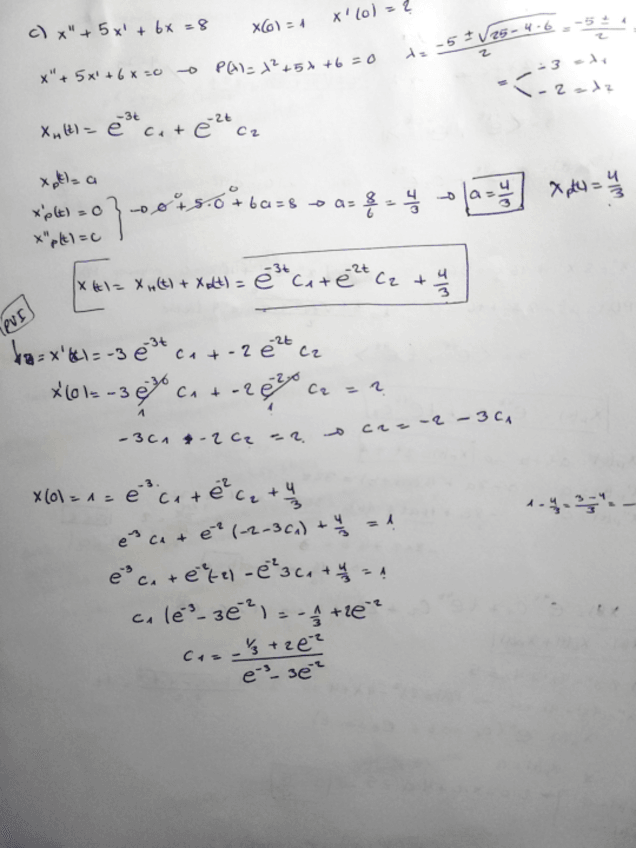 c) x'' + 5x' + 6x = 8   x(0) = 1   x'(0) = 2
x'' + 5x' + 6x = 0 → P(λ) = λ² + 5λ + 6 = 0   λ = (-5 ± √(25 - 4·6))/2 = (-5 ± 1)/2
= < -3 = λ₁
-2 = λ₂
x_H(t) = e^{-3t} c₁ + e^{-2t} c₂
x_p(t) = a
x'_p(t) = 0 } → 0 + 5·0 + 6a = 8 → a = 8/6 = 4/3 → a = 4/3   x_p(t) = 4/3
x''_p(t) = 0
x(t) = x_H(t) + x_p(t) = e^{-3t} c₁ + e^{-2t} c₂ + 4/3
PVI
x'(t) = -3 e^{-3t} c₁ + -2 e^{-2t} c₂
x'(0) = -3 e^{-3·0} c₁ + -2 e^{-2·0} c₂ = 2
1   1
-3c₁ - 2c₂ = 2 → c₂ = -2 - 3c₁
x(0) = 1 = e^{-3} c₁ + e^{-2} c₂ + 4/3   1 - 4/3 = (3-4)/3 = -
e^{-3} c₁ + e^{-2} (-2-3c₁) + 4/3 = 1
e^{-3} c₁ + e^{-2}(-2) - e^{-2} 3c₁ + 4/3 = 1
c₁ (e^{-3} - 3e^{-2}) = -1/3 + 2e^{-2}
c₁ = (-1/3 + 2e^{-2})/(e^{-3} - 3e^{-2})